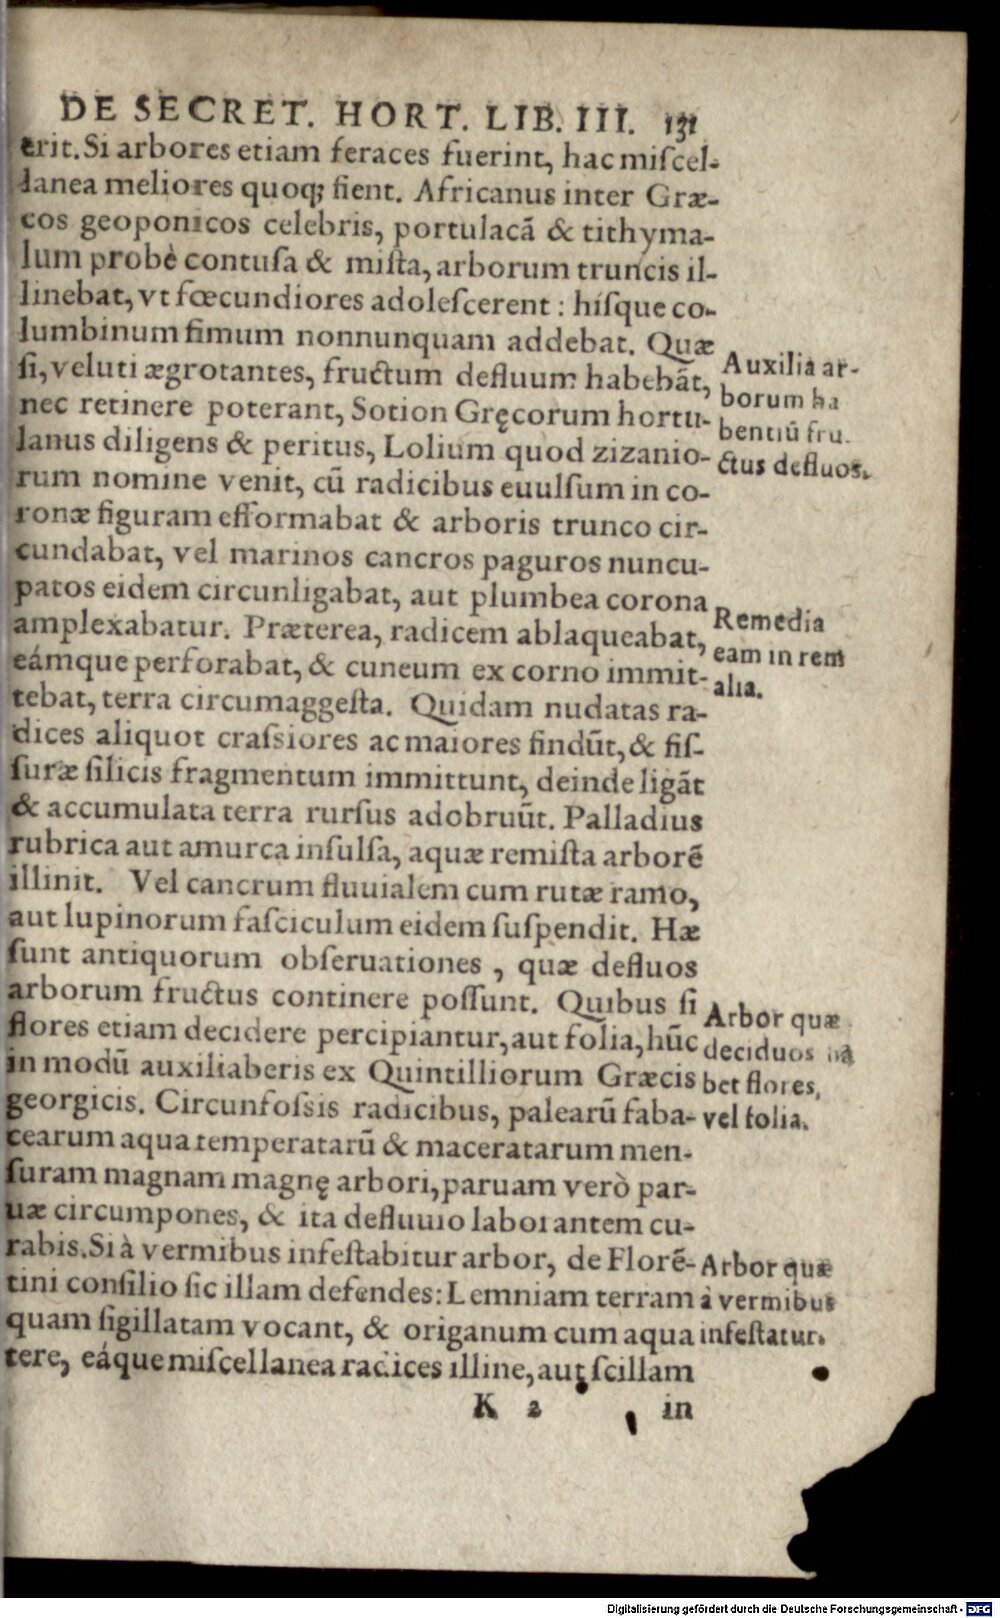 DE SECRET. HORT. LIB. III. 131
erit. Si arbores etiam feraces fuerint, hac miſcel-
lanea meliores quoq; fient. Africanus inter Græ-
cos geoponicos celebris, portulacã & tithyma-
lum probè contuſa & miſta, arborum truncis il-
linebat, vt fœcundiores adoleſcerent : hiſque co-
lumbinum fimum nonnunquam addebat. Quæ
ſi, veluti ægrotantes, fructum defluum habebãt,
nec retinere poterant, Sotion Gręcorum hortu-
lanus diligens & peritus, Lolium quod zizanio-
rum nomine venit, cũ radicibus euulſum in co-
ronæ figuram efformabat & arboris trunco cir-
cundabat, vel marinos cancros paguros nuncu-
patos eidem circunligabat, aut plumbea corona
amplexabatur. Præterea, radicem ablaqueabat,
eámque perforabat, & cuneum ex corno immit-
tebat, terra circumaggeſta. Quidam nudatas ra-
dices aliquot craſsiores ac maiores findũt, & fiſ-
ſuræ ſilicis fragmentum immittunt, deinde ligãt
& accumulata terra rurſus adobruũt. Palladius
rubrica aut amurca inſulſa, aquæ remiſta arborẽ
illinit. Vel cancrum fluuialem cum rutæ ramo,
aut lupinorum faſciculum eidem ſuſpendit. Hæ
ſunt antiquorum obſeruationes , quæ defluos
arborum fructus continere poſſunt. Quibus ſi
flores etiam decidere percipiantur, aut folia, hũc
in modũ auxiliaberis ex Quintilliorum Græcis
georgicis. Circunfoſsis radicibus, palearũ faba-
cearum aqua temperatarũ & maceratarum men-
ſuram magnam magnę arbori, paruam verò par-
uæ circumpones, & ita defluuio laborantem cu-
rabis. Si à vermibus infeſtabitur arbor, de Florẽ-
tini conſilio ſic illam defendes: Lemniam terram
quam ſigillatam vocant, & origanum cum aqua
tere, eáque miſcellanea radices illine, aut ſcillam
K 2 in
Auxilia ar-
borum ha
bentiũ fru-
ctus defluos.
Remedia
eam in rem
alia.
Arbor quæ
deciduos ha
bet flores,
vel folia.
Arbor quæ
à vermibus
infeſtatur.
Digitalisierung gefördert durch die Deutsche Forschungsgemeinschaft - DFG